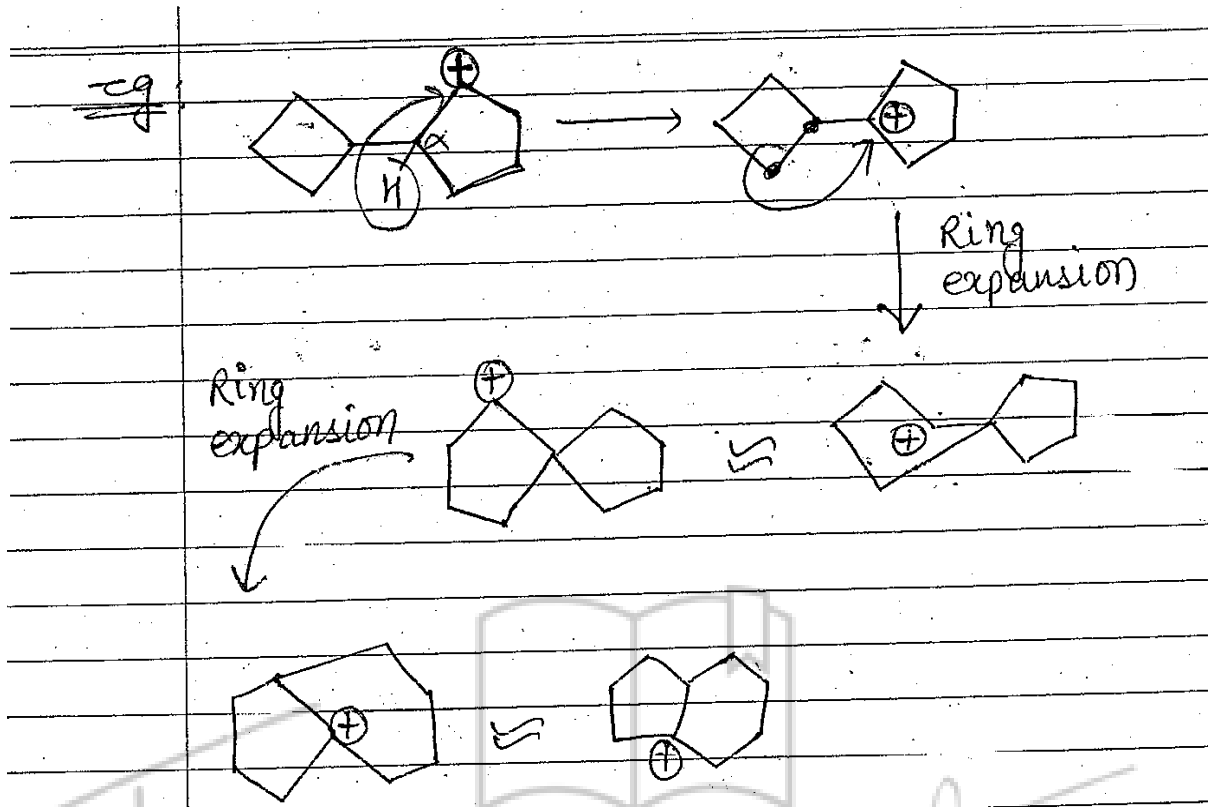 eg
⊕
α
H
⊕
Ring
expansion
Ring
expansion
⊕
≈
⊕
⊕
≈
⊕